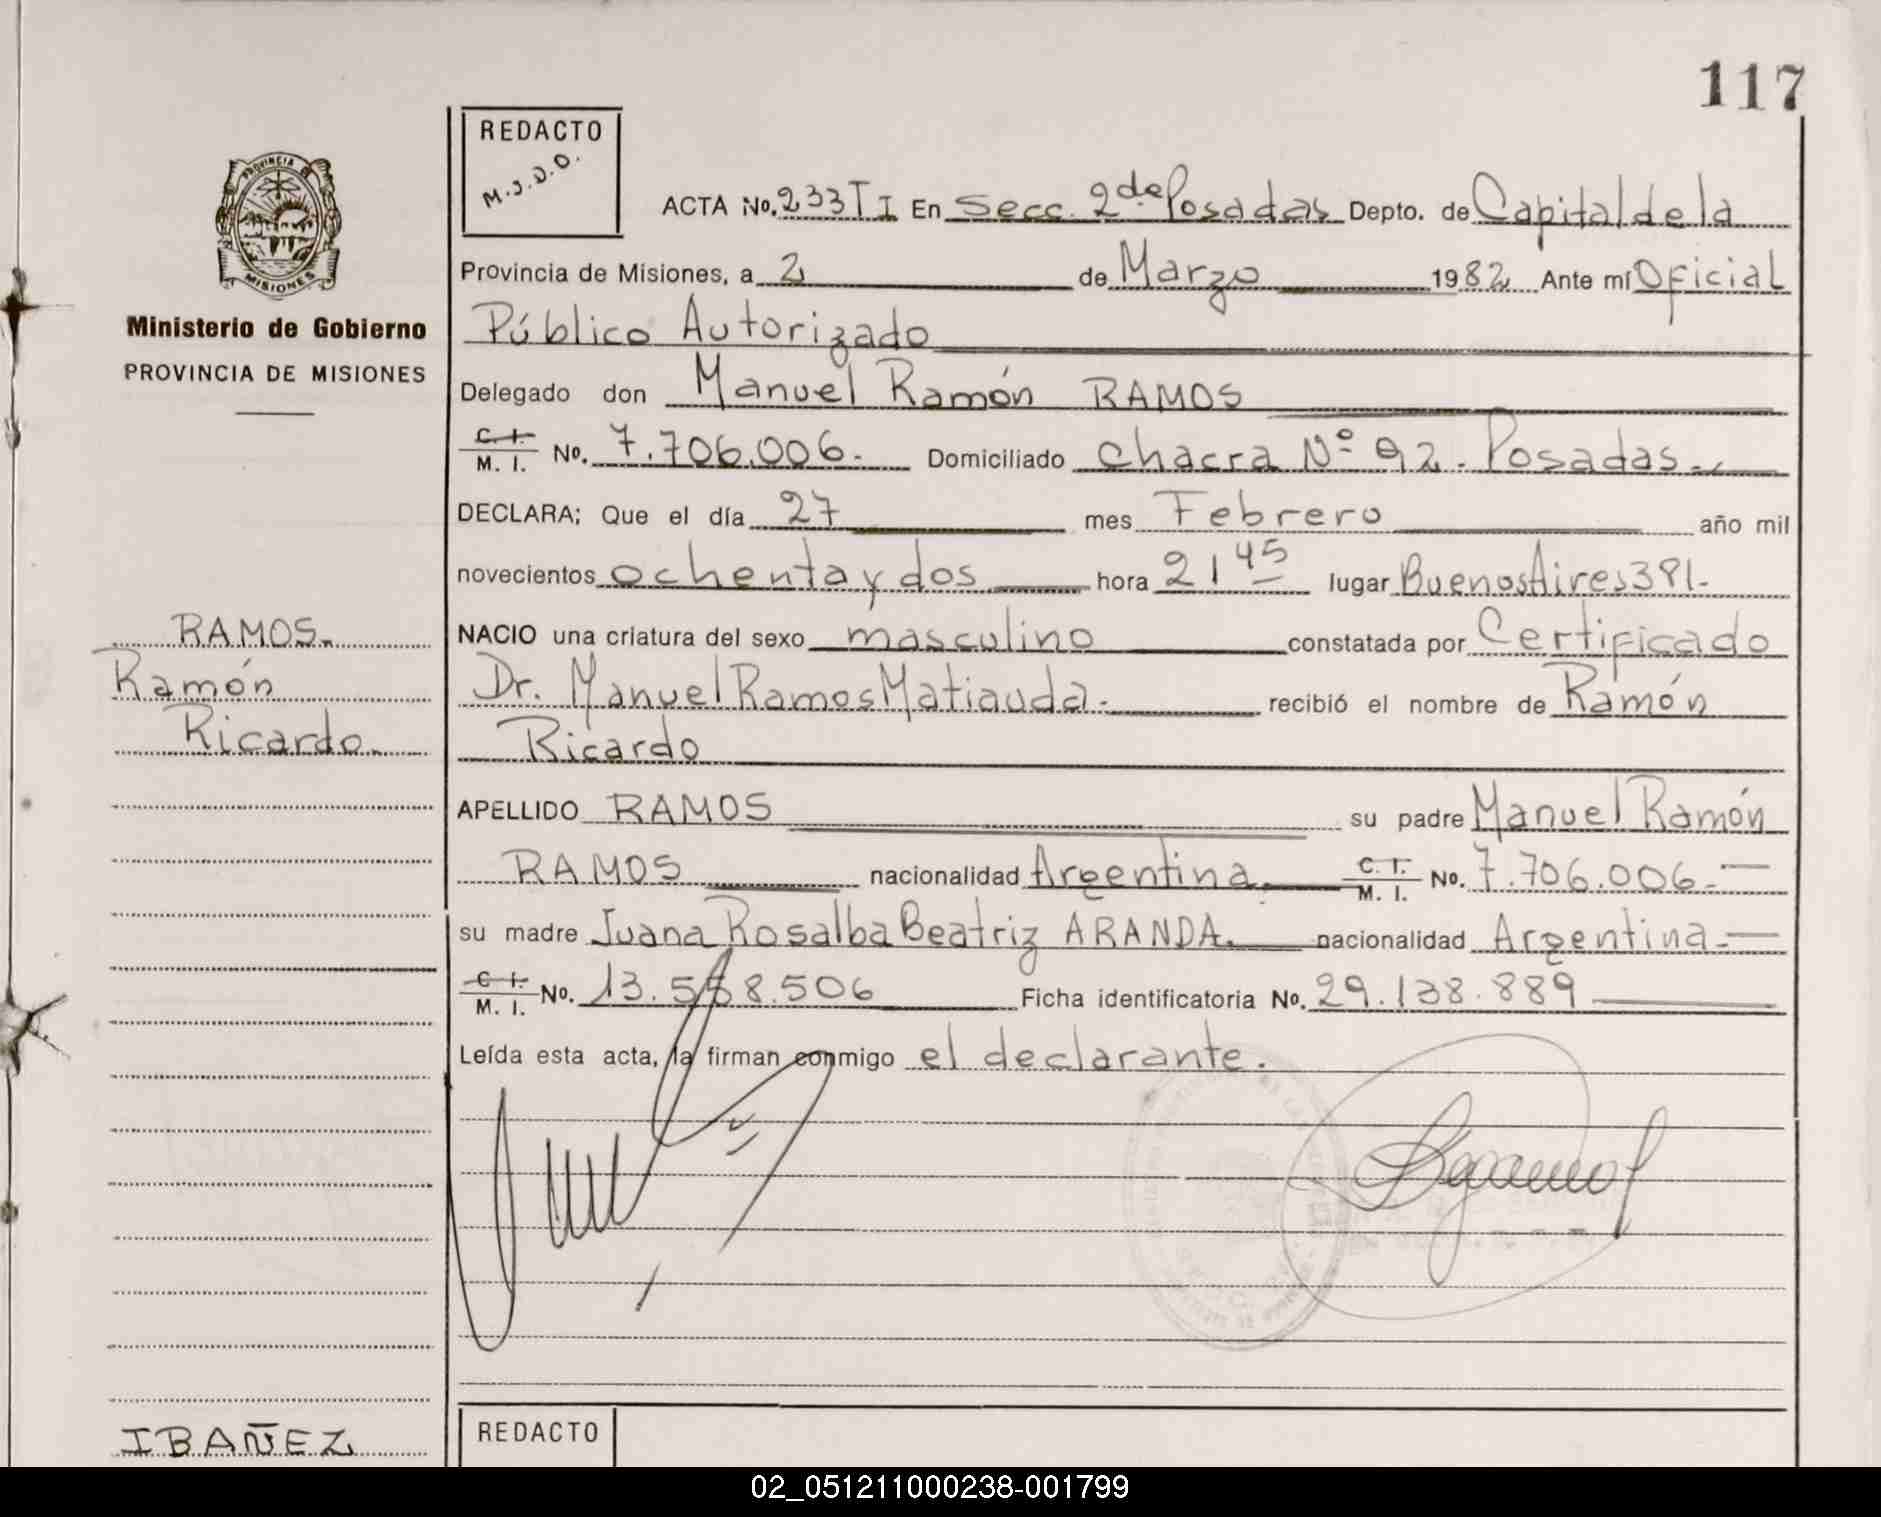 117
REDACTO
M.J.D.O.
PROVINCIA
MISIONES
Ministerio de Gobierno
PROVINCIA DE MISIONES
ACTA No. 233 T I En Secc. 2da Posadas Depto. de Capital de la
Provincia de Misiones, a 2 de Marzo 1982 Ante mí Oficial
Público Autorizado
Delegado don Manuel Ramón RAMOS
C. I. M. I. No. 7.706.006.- Domiciliado Chacra Nº 92 - Posadas.-
DECLARA; Que el día 27 mes Febrero año mil
novecientos ochenta y dos hora 21 45 lugar Buenos Aires 381.-
RAMOS.-
Ramón
Ricardo.-
NACIO una criatura del sexo masculino constatada por Certificado
Dr. Manuel Ramos Matiauda.- recibió el nombre de Ramón
Ricardo
APELLIDO RAMOS su padre Manuel Ramón
RAMOS nacionalidad Argentina C. I. M. I. No. 7.706.006.-
su madre Juana Rosalba Beatriz ARANDA. nacionalidad Argentina.-
C. I. M. I. No. 13.558.506 Ficha identificatoria No. 29.138.889
Leída esta acta, la firman conmigo el declarante.
IBAÑEZ
REDACTO
02_051211000238-001799